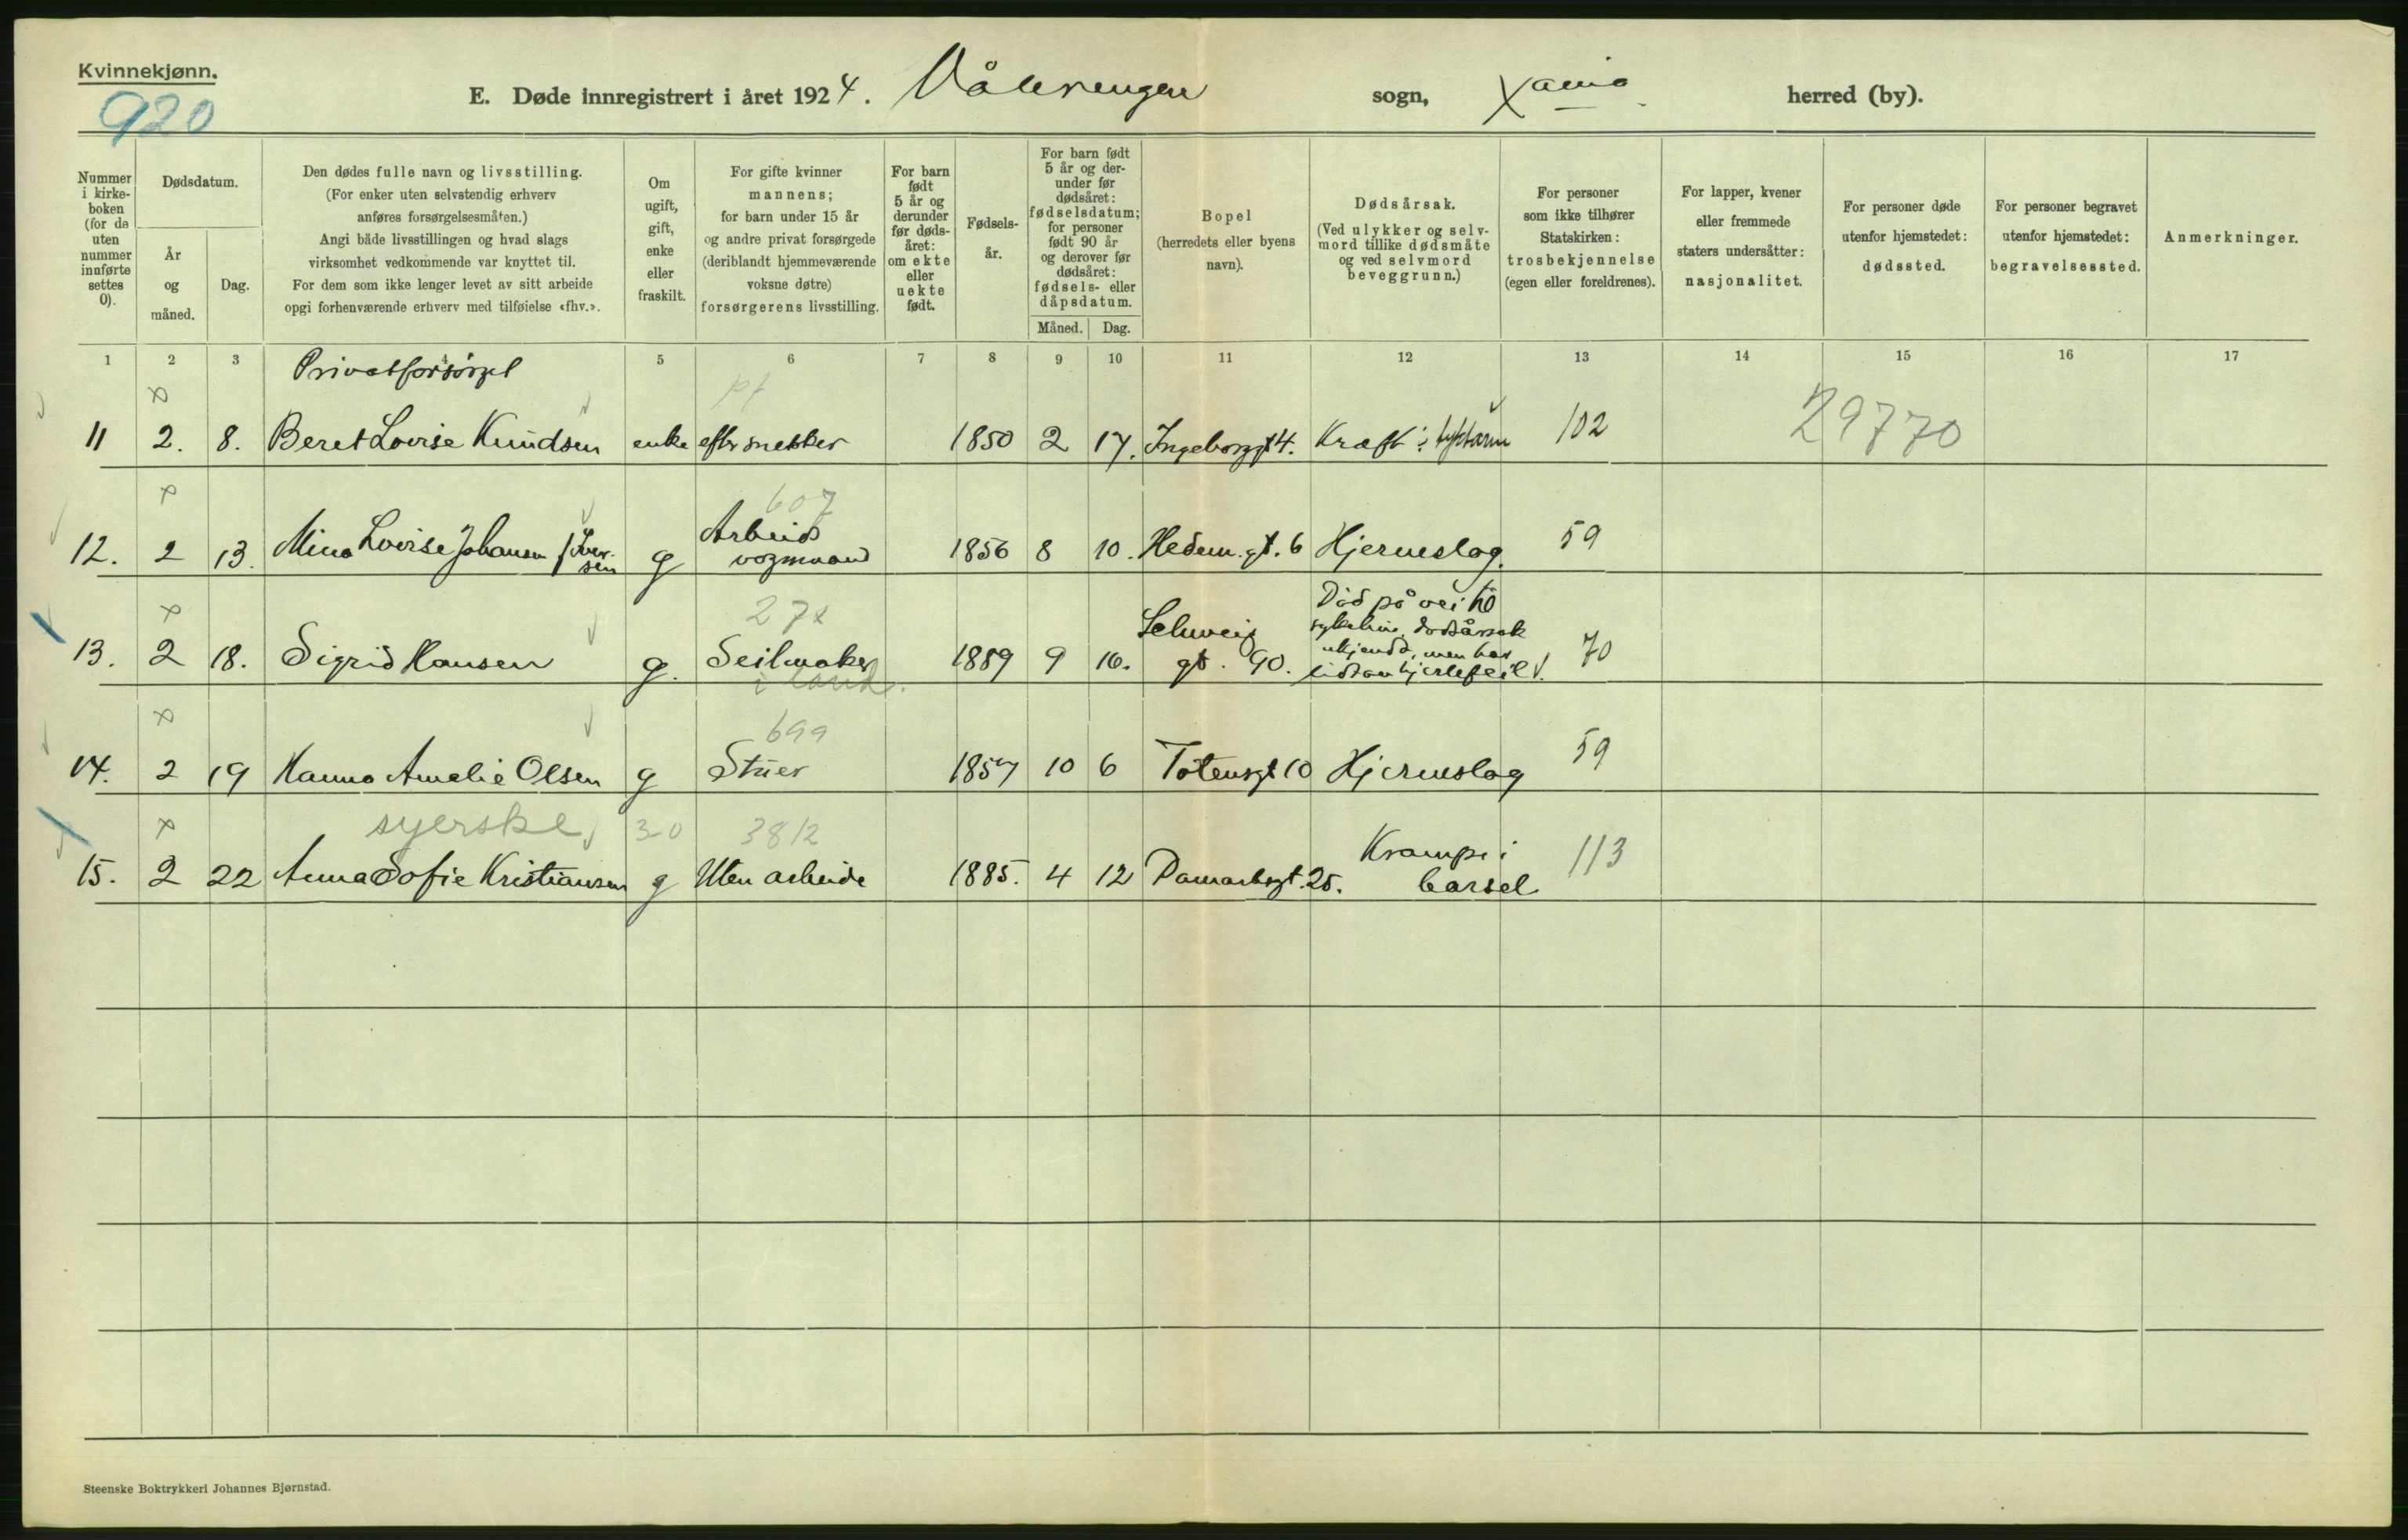 Kvinnekjønn.
920
E. Døde innregistrert i året 1924. Vålerengen sogn, Xania herred (by).
Nummer i kirkeboken (for de uten nummer innførte settes 0).
Dødsdatum.
År og måned.
Dag.
Den dødes fulle navn og livsstilling.
(For enker uten selvstendig erhverv
anføres forsørgelsesmåten.)
Angi både livsstillingen og hvad slags
virksomhet vedkommende var knyttet til.
For dem som ikke lenger levet av sitt arbeide
opgi forhenværende erhverv med tilføielse «fhv.».
Om ugift, gift, enke eller fraskilt.
For gifte kvinner
mannens;
for barn under 15 år
og andre privat forsørgede
(deriblandt hjemmeværende
voksne døtre)
forsørgerens livsstilling.
For barn født 5 år og derunder før dødsåret: om ekte eller uekte født.
Fødselsår.
For barn født 5 år og derunder før dødsåret: fødselsdatum; for personer født 90 år og derover før dødsåret: fødsels- eller dåpsdatum.
Måned. Dag.
Bopel
(herredets eller byens
navn).
Dødsårsak.
(Ved ulykker og selvmord tillike dødsmåte
og ved selvmord
beveggrunn.)
For personer
som ikke tilhører
Statskirken:
trosbekjennelse
(egen eller foreldrenes).
For lapper, kvener
eller fremmede
staters undersåtter:
nasjonalitet.
For personer døde
utenfor hjemstedet:
dødssted.
For personer begravet
utenfor hjemstedet:
begravelsessted.
Anmerkninger.
1 2 3 4 5 6 7 8 9 10 11 12 13 14 15 16 17
Privatforsørget
pf
11 2. 8. Beret Lovise Knudsen enke efter snekker 1850 2 17. Ingeborggt 4. Kræft i tyktarm 102 29770
607
12. 2 13. Mina Lovise Johansen f. Iversen g Arbeids vognmand 1856 8 10. Hedem.gt. 6 Hjerneslag. 59
27x
13. 2 18. Sigrid Hansen g. Seilmaker i land. 1889 9 16. Schweiggt. 90. Død på vei til sykehus, dødsårsak ukjendt, men har lidt av hjertefeil. 70
699
14. 2 19 Hanna Amalie Olsen g Stuer 1857 10 6 Totensgt 10 Hjerneslag 59
syerske 30 3812
15. 2 22 Anna Sofie Kristiansen g Uten arbeide 1885. 4 12 Danmarksgt. 25. Krampe i barsel 113
Steenske Boktrykkeri Johannes Bjørnstad.